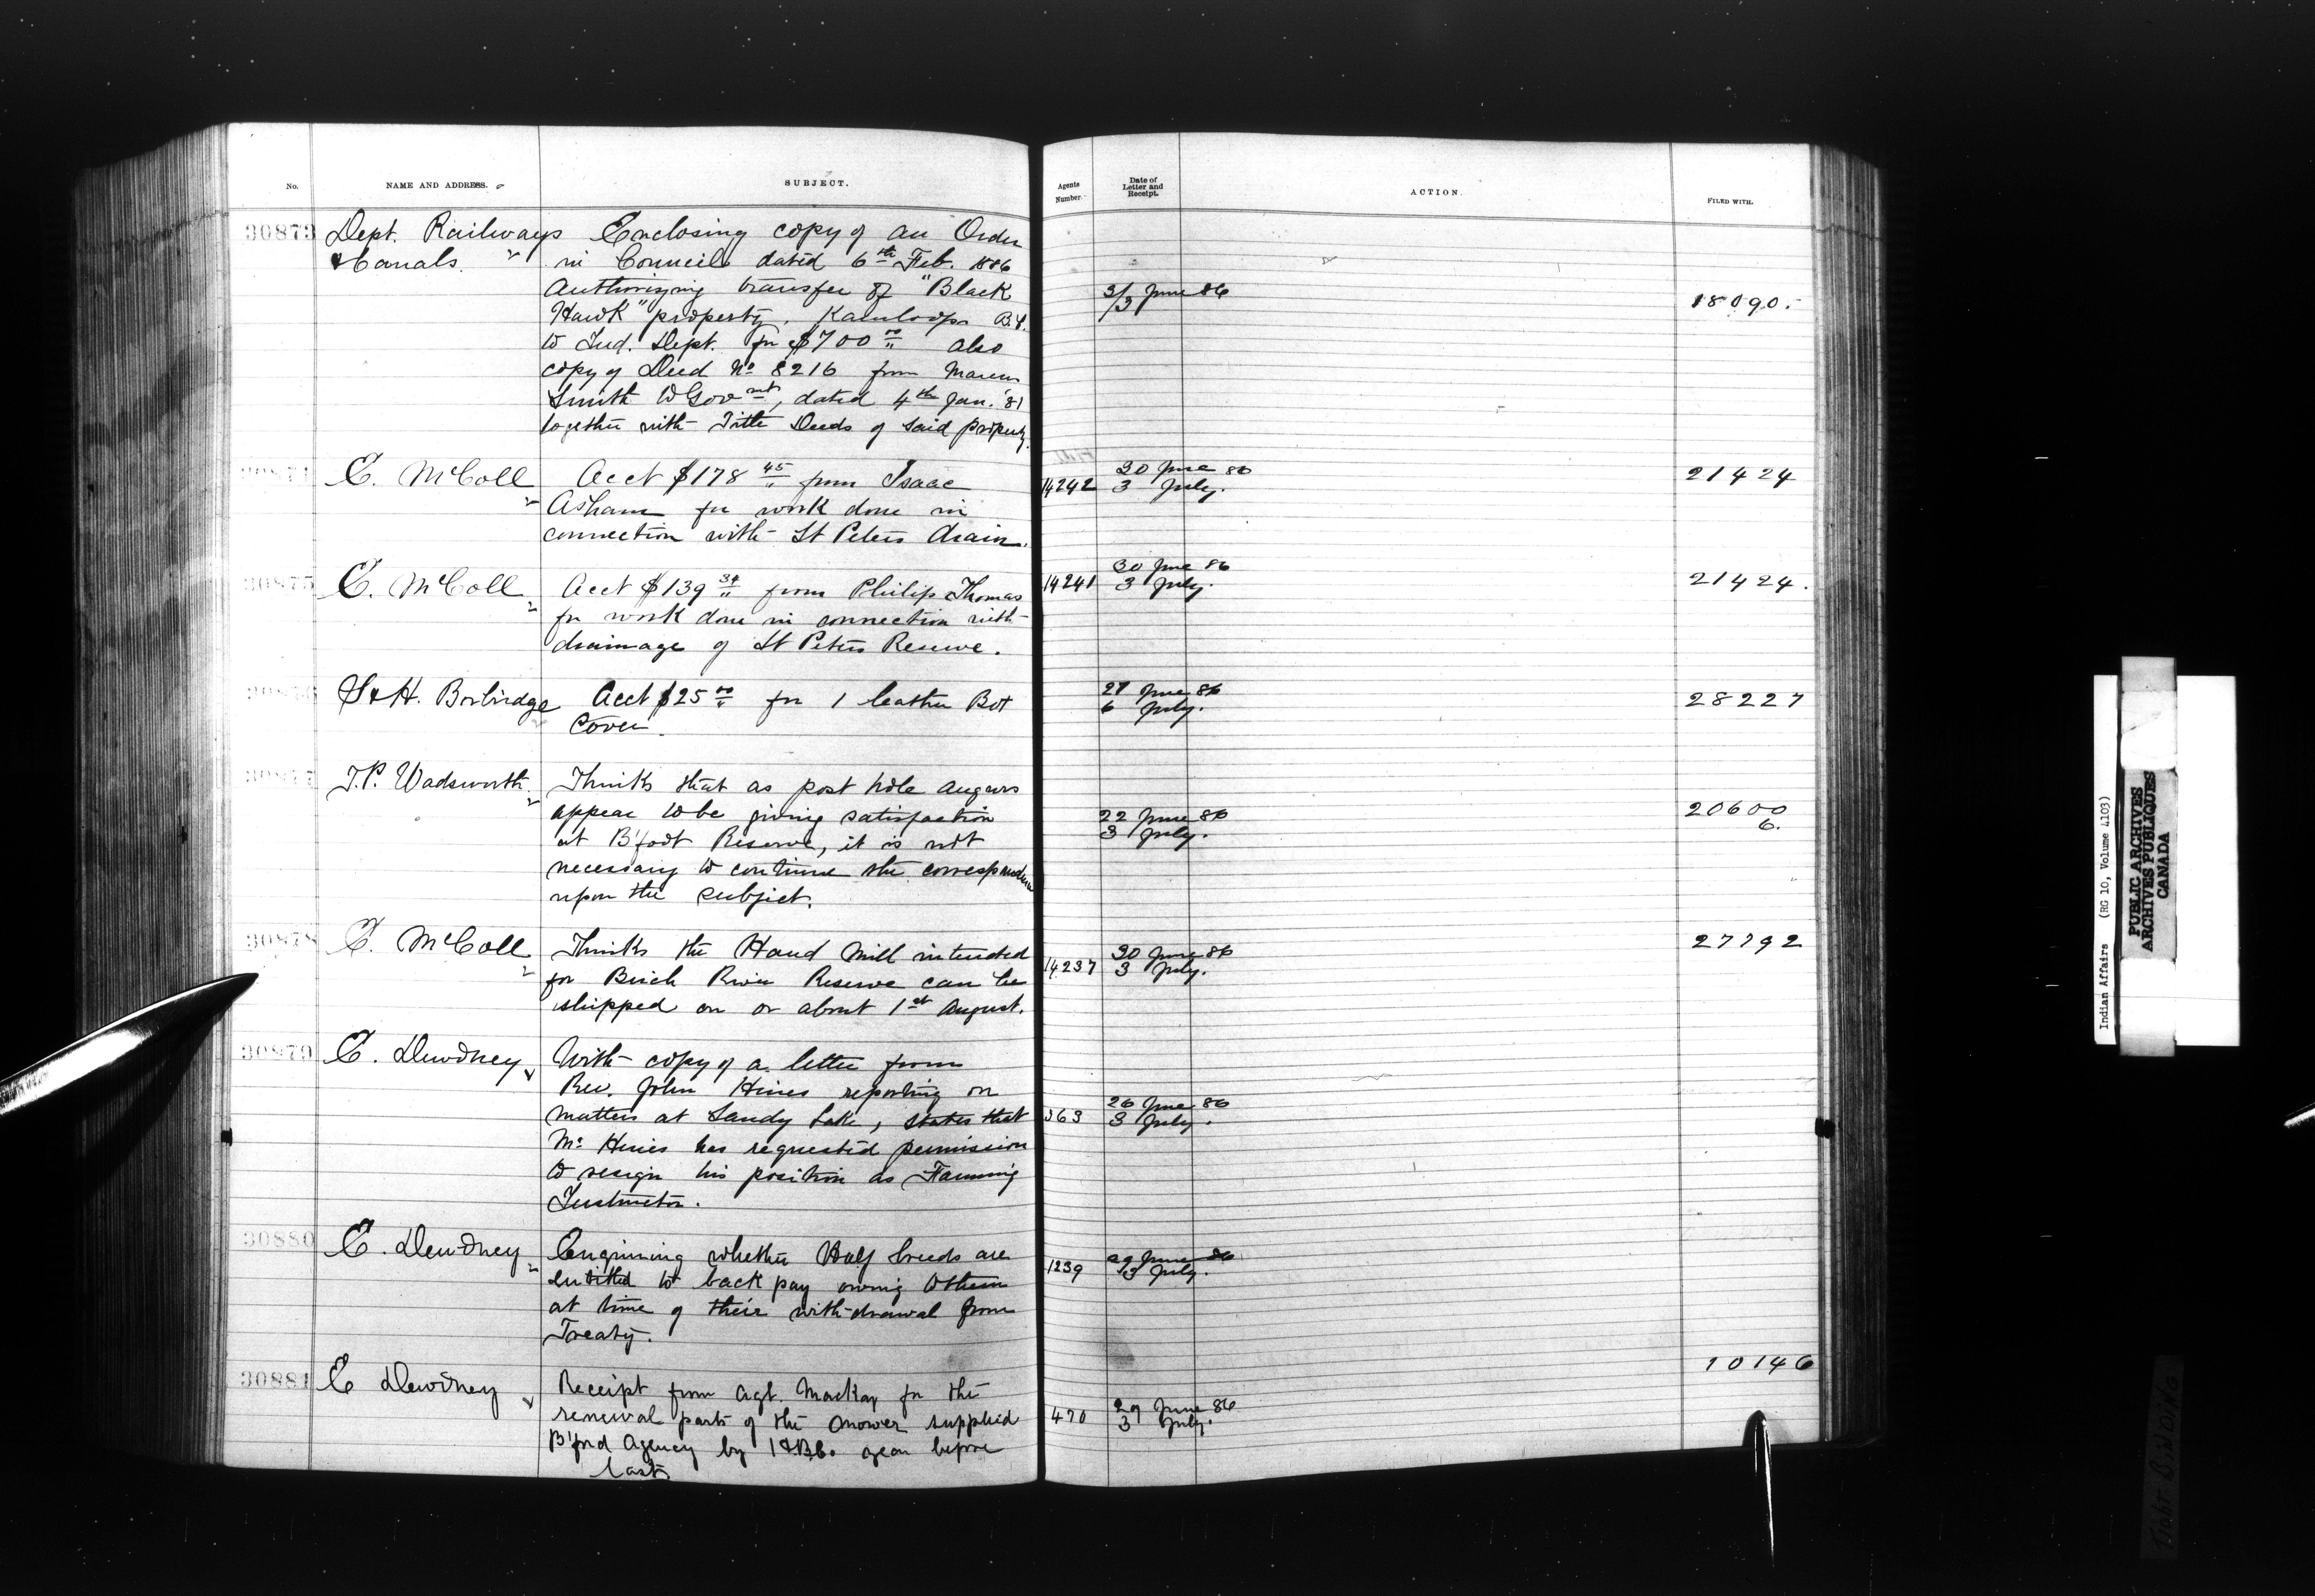 No. NAME AND ADDRESS. SUBJECT. Agents Number. Date of Letter and Receipt. ACTION. FILED WITH.
30873 Dept. Railways Enclosing copy of an Order
& Canals. in Council dated 6th Feb. 1886
Authorizing transfer of "Black 3/3 June 86 18090.
Hawk" property, Kamloops B.C.
to Ind. Dept. for $700 00/" also
copy of Deed No 8216 from Marcus
Smith to Govmt, dated 4th Jan. '81
together with Title Deeds of said property.
30874 E. McColl Acct $178 45/" from Isaac 14242 30 June 86 21424
Asham for work done in 3 July.
connection with St Peters drain.
30875 E. McColl Acct $139 34/" from Philip Thomas 14241 30 June 86 21424.
for work done in connection with 3 July.
drainage of St Peters Reserve.
30876 S & H. Borbridge Acct $25 00/" for 1 leather Bot 27 June 86 28227
Cover. 6 July.
30877 T.P. Wadsworth. Thinks that as post hole augurs
appear to be giving satisfaction 22 June 86 20600
at B'foot Reserve, it is not 3 July. 6.
necessary to continue the correspondence
upon the subject.
30878 E. McColl Thinks the Hand Mill intended 14237 30 June 86 27792
for Birch River Reserve can be 3 July.
shipped on or about 1st August.
30879 E. Dewdney With copy of a letter from
Rev. John Hines reporting on 26 June 86
matters at Sandy Lake, states that 363 3 July.
Mr Hines has requested permission
to resign his position as Farming
Instructor.
30880 E. Dewdney Enquiring whether Half breeds are 1239 29 June 86
entitled to back pay owing to them 3 July.
at time of their with-drawal from
Treaty.
30881 E Dewdney Receipt from Agt. Mackay for the 10146
renewal parts of the mower supplied 470 29 June 86
B'ford Agency by I.G.B.Co. year before 3 July.
last
Indian Affairs (RG 10, Volume 4103)
PUBLIC ARCHIVES
ARCHIVES PUBLIQUES
CANADA
Tight BINDING